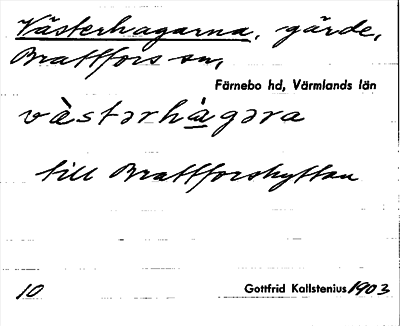 Västerhagarna, gärde,
Brattfors sn,
Färnebo hd, Värmlands län
västərhàgəra
till Brattforshyttan
10
Gottfrid Kallstenius 1903